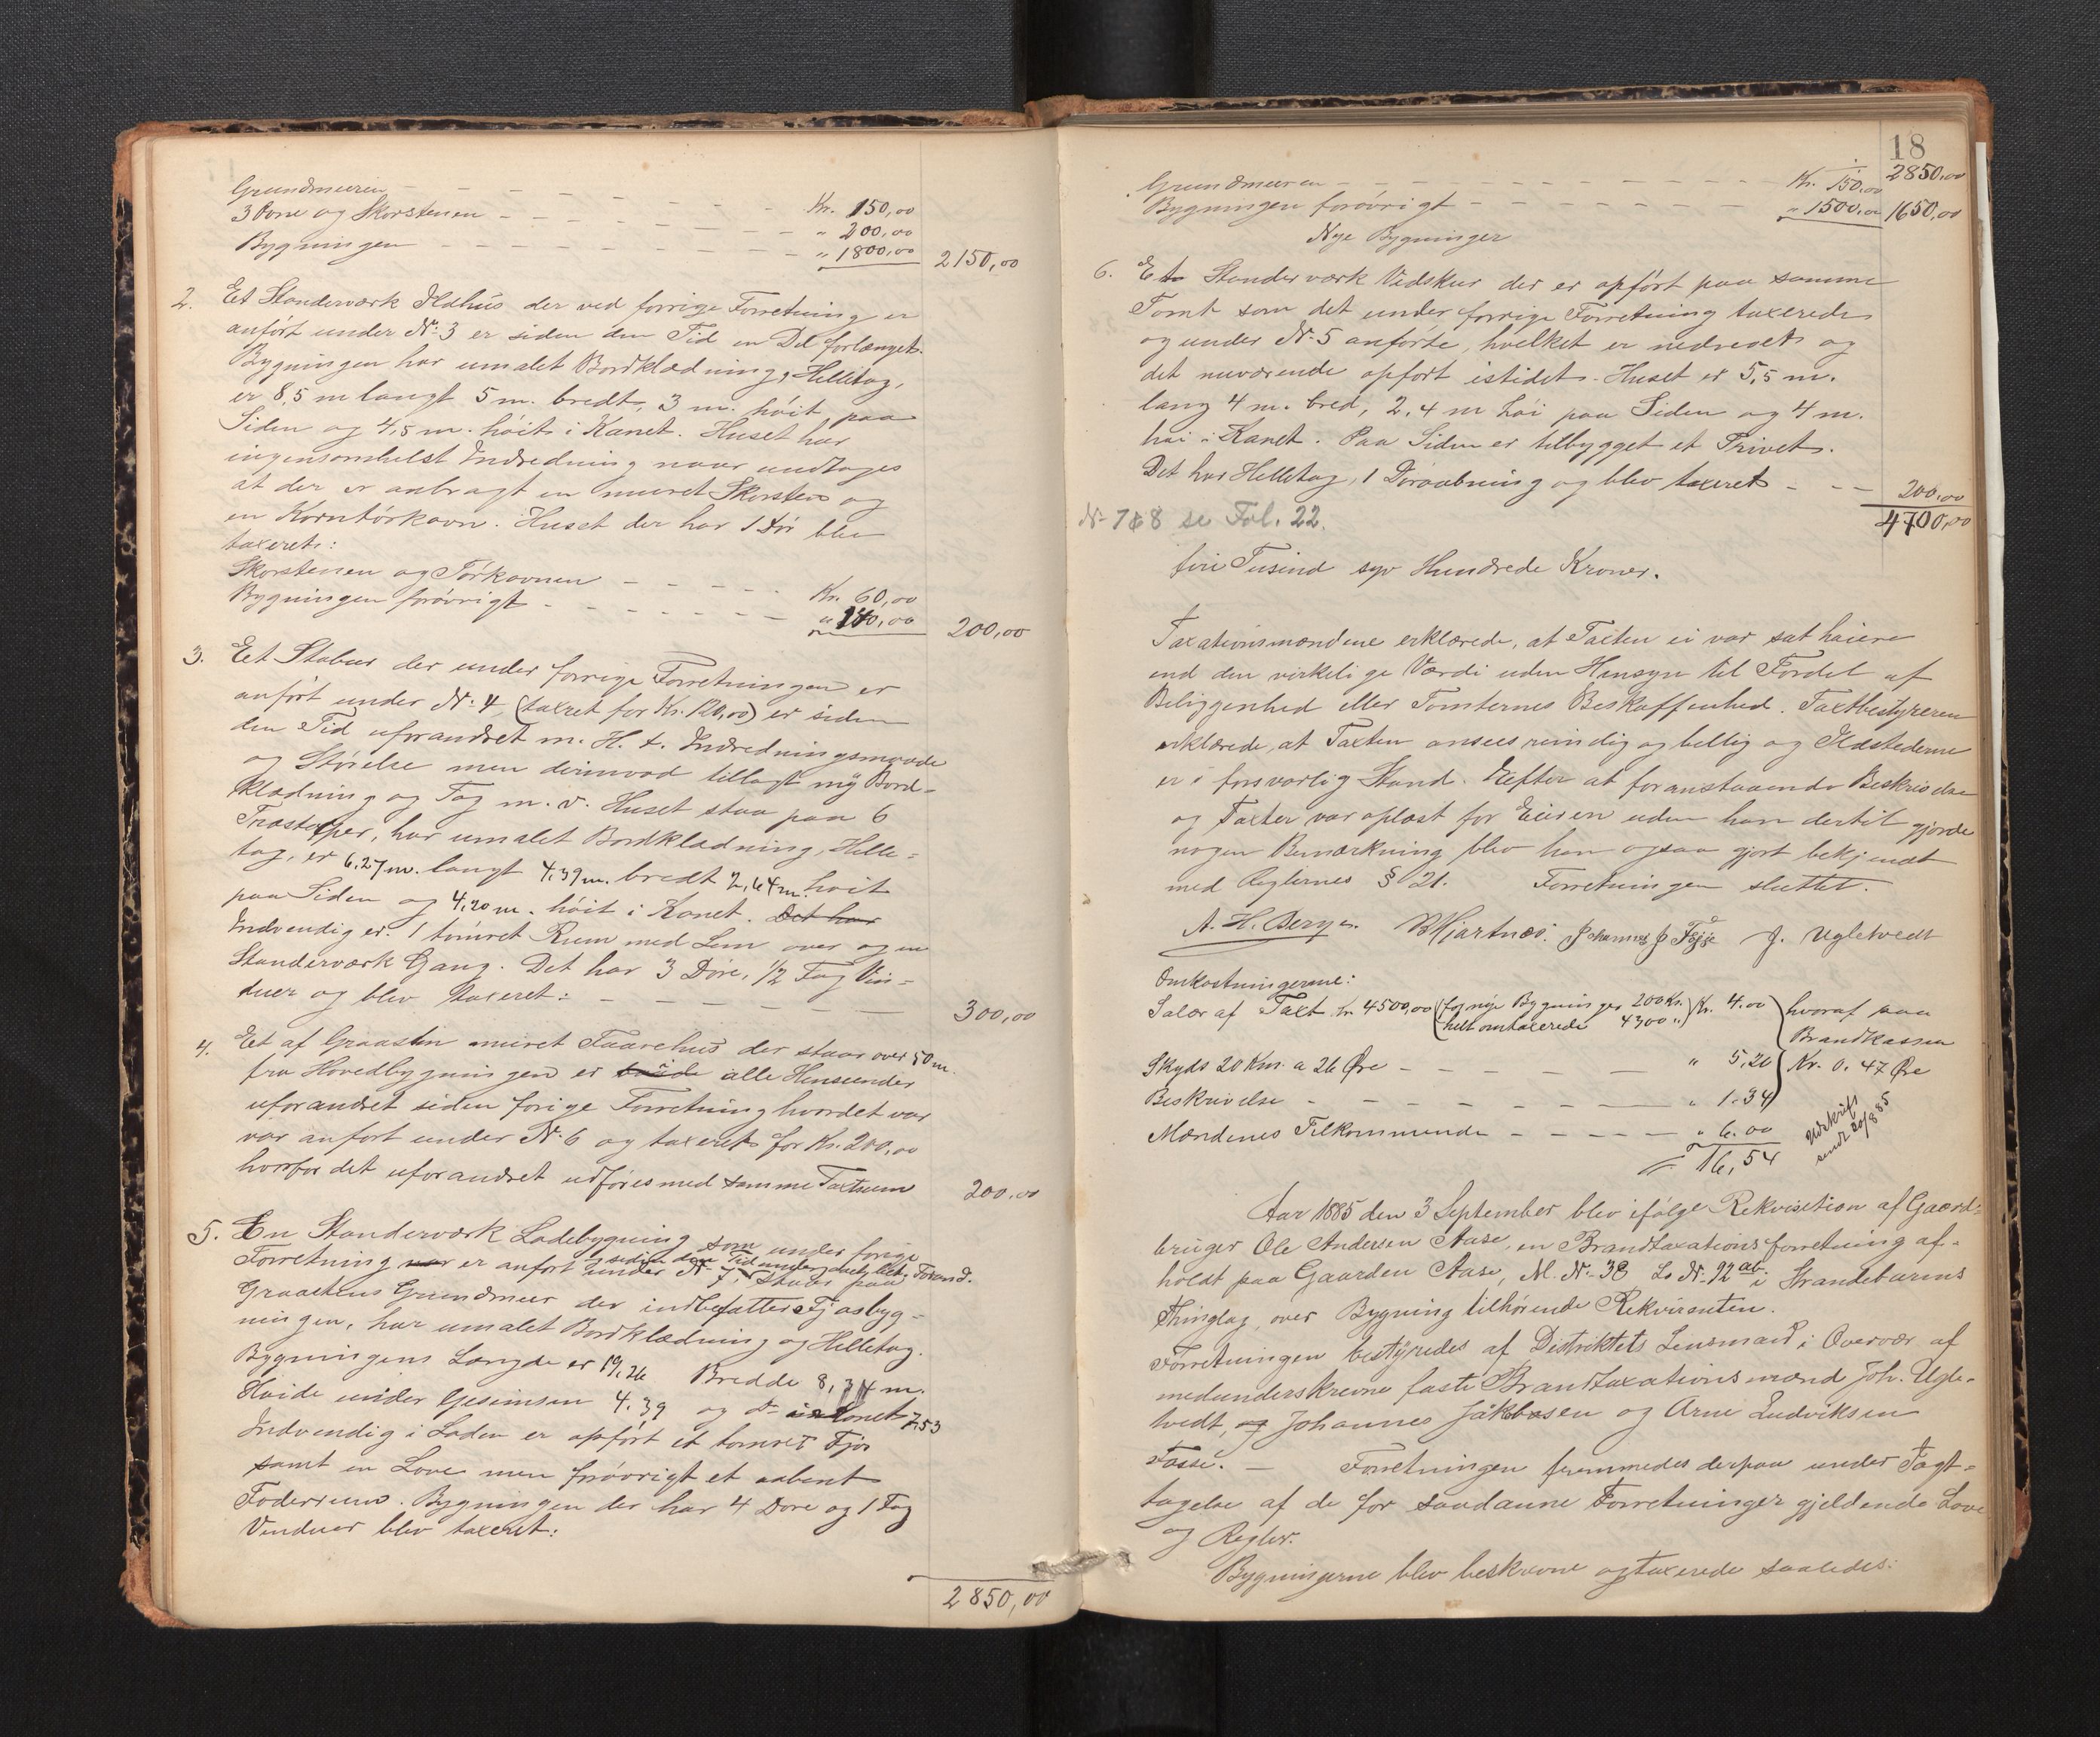 Grundmuren - - - - - - - Kr. 150,00
3 Ovne og Skorstenen - - - - - - " 200,00
Bygningen - - - - - - - " 1800,00 2150,00
2. Et Standerværk Ildhus der ved forrige Forretning er
anført under No 3 er siden den Tid en Del forlænget.
Bygningen har umalet Bordklædning, Helletag,
er 8,5 m langt 5 m. bredt, 3 m. høit paa
Siden og 4,5 m. høit i Kanet. Huset har
ingensomhelst Indredning naar undtages
at der er anbragt en muret Skorsten og
en Korntørkovn. Huset der har 1 Dør blev
taxeret:
Skorstenen og Tørkovnen - - - - Kr. 60,00
Bygningen forøvrigt - - - - - - " 140,00 200,00
3. Et Stabur der under forrige Forretningen er
anført under No 4, (taxret for Kr. 120,00) er siden
den Tid uforandret m. H. t. Indredningsmaade
og Størrelse men derimod tillagt ny Bord-
klædning og Tag m. v. Huset staa paa 6
Træstolper, har umalet Bordklædning, Helle-
tag, er 6,27 m. langt 4,39 m. bredt 2,64 m. høit
paa Siden og 4,20 m. høit i Kanet. Det har
Indvendig er 1 tømret Rum med Lem over og en
Standerværk Gang. Det har 3 Døre, 1/2 Fag Vin-
duer og blev taxeret: - - - - - 300,00
4. Et af Graasten muret Faarehus der staar over 50 m.
fra Hovedbygningen er alle Henseender
uforandret siden forige Forretning hvordet var
var anført under No 6 og taxeret for Kr. 200,00
hvorfor det uforandret udføres med samme Taxtsum 200,00
5. En Standerværk Ladebygning som under forige
Forretning var er anført under No 7, siden den Tid undergaaet Forand.
Staar paa
Graastens Grundmur der indbefatter Fjøsbyg-
ningen, har umalet Bordklædning og Helletag.
Bygningens Længde er 19,26 Bredde 8,34 m.
Høide under Gesimsen 4.39 og do i Kanet 7,53
Indvendig i Laden er opført et tømret Fjøs
samt en Love men forøvrigt et aabent
Foderrum. Bygningen der har 4 Døre og 1 Fag
Vinduer blev taxeret:
2850,00
18
2850,00
Grundmuren - - - - - - - - Kr. 150,00
Bygningen forøvrigt - - - - - - " 1500,00 1650,00
Nye Bygninger
6. Et Standerværk Vedskur der er opført paa samme
Tomt som det under forrige Forretning taxerede
og under No 5 anførte, hvilket er nedrevet og
det nuværende opført istedet. Huset er 5,5 m.
lang 4 m. bred, 2,4 m høi paa Siden og 4 m.
høi i Kanet. Paa Siden er tilbygget et Privet.
Det har Helletag, 1 Døraabning og blev taxeret - - - 200,00
No 7 & 8 se Fol. 22. 4700,00
fire Tusind syv Hundrede Kroner.
Taxationsmændene erklærede, at Taxten ei var sat høiere
end den virkelige Værdi uden Hensyn til Fordel af
Beliggenhed eller Tomternes Beskaffenhed. Taxtbestyreren
erklærede, at Taxten ansees rimelig og billig og Ildstederne
er i forsvarlig Stand. Efter at foranstaaende Beskrivelse
og Taxter var oplæst for Eieren uden han dertil gjorde
nogen Bemærkning blev han ogsaa gjort bekjendt
med Reglernes § 21. Forretningen sluttet.
A. H. Berge. B Hjartnæs. Johannes J Fosse J. Ugletvedt
Omkostningerne:
Salær af Taxt Kr 4500,00 (for nye Bygninger 200 Kr.) Kr. 4.00 hvoraf paa
(helt omtaxerede 4300 ") Brandkassen
Skyds 20 Km. a 26 Øre - - - - - " 5,20 Kr. 0. 47 Øre
Beskrivelse - - - - - - " 1.34
Mændenes Tilkommende - - - - " 6.00
16,54
Udskrift
sendt 20/8 85
Aar 1885 den 3 September blev ifølge Rekvisition af Gaard-
bruger Ole Andersen Aase, en Brandtaxationsforretning af-
holdt paa Gaarden Aase, M. No 38 L No 92 ab i Strandebarms
Thinglag, over Bygning tilhørende Rekvirenten.
Forretningen bestyredes af Distriktets Lensmand i Overvær af
medunderskrevne faste Brandtaxationsmænd Joh. Ugle-
tvedt, og Johannes Jakobsen og Arne Ludviksen
Fosse. - Forretningen fremmedes derpaa under Iagt-
tagelse af de for saadanne Forretninger gjeldende Love
og Regler.
Bygningerne blev beskrevne og taxerede saaledes: